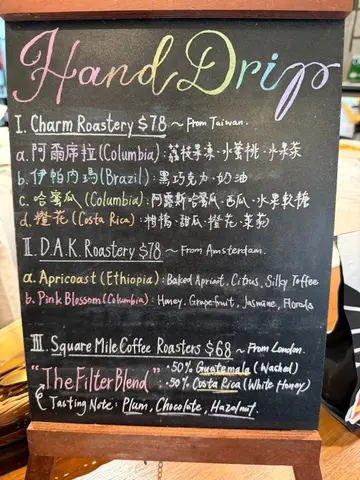 Hand Drip
I. Charm Roastery $78 ~ From Taiwan.
a. 阿爾席拉 (Columbia): 荔枝果凍·水蜜桃·水果茶
b. 伊帕內瑪 (Brazil): 黑巧克力·奶油
c. 哈蜜瓜 (Columbia): 阿露斯哈蜜瓜·西瓜·水果軟糖
d. 橙花 (Costa Rica): 柑橘·甜瓜·橙花·茉莉
II. D.A.K. Roastery $78 ~ From Amsterdam.
a. Apricoast (Ethiopia): Baked Apriort. Citrus, Silky Toffee
b. Pink Blossom (Columbia): Honey. Grapefruit, Jasmine, Florals
III. Square Mile Coffee Roasters $68 ~ From London.
"The Filter Blend" : ·50% Guatemala (Washed)
·50% Costa Rica (White Honey)
Tasting Note: Plum, Chocolate, Hazelnut.